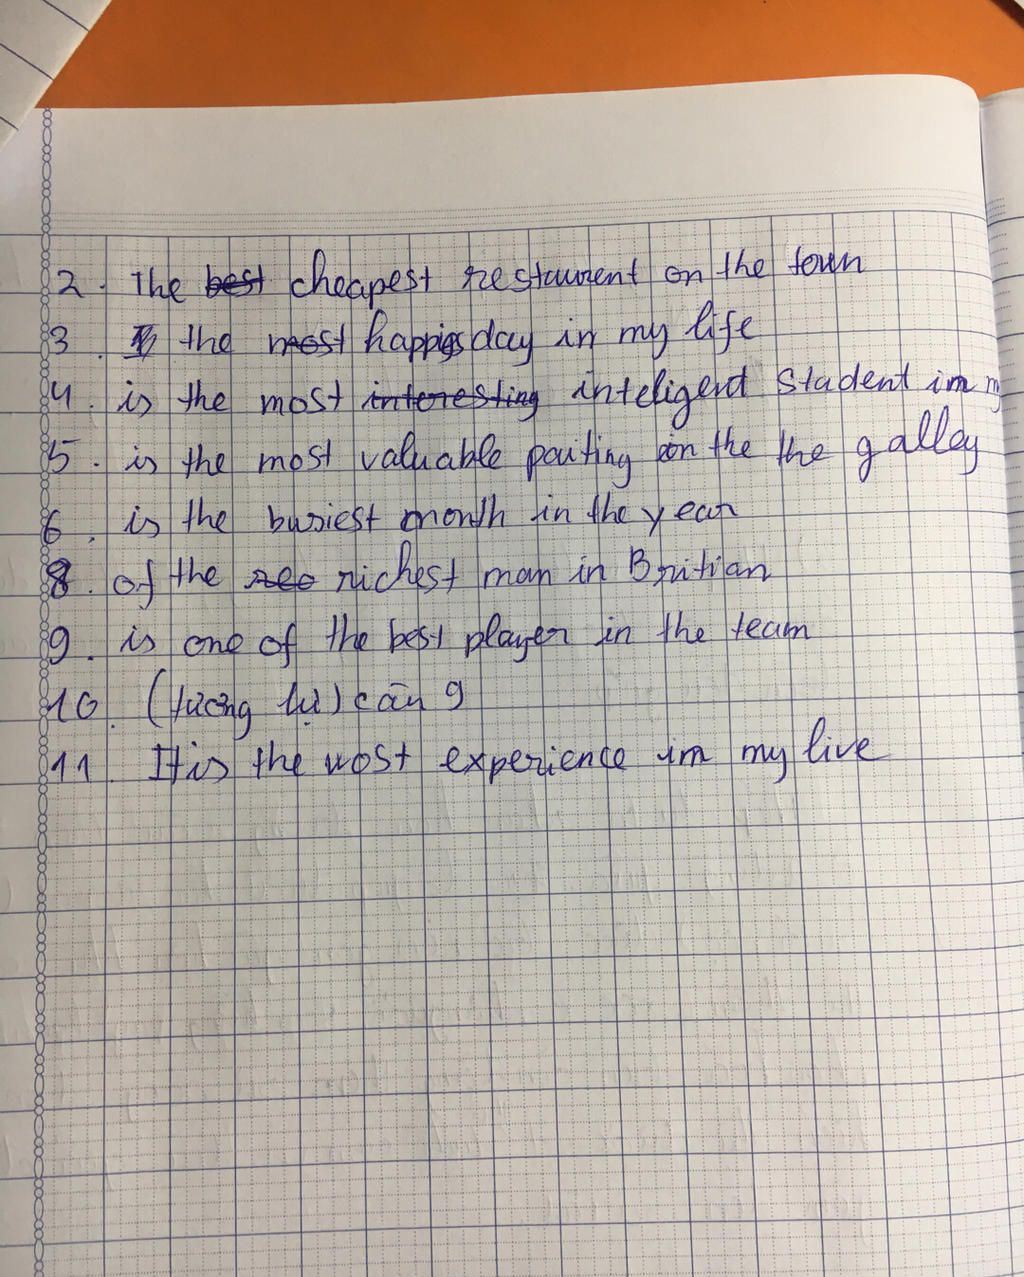 2. The best cheapest restaurent on the town
3. the most happies day in my life
4. is the most interesting inteligent student im m
5. is the most valuable pauting on the the galley
6. is the busiest month in the year
8. of the richest man in Britian
9. is one of the best player in the team
10. (tương tự) câu 9
11. It is the wost experience im my live